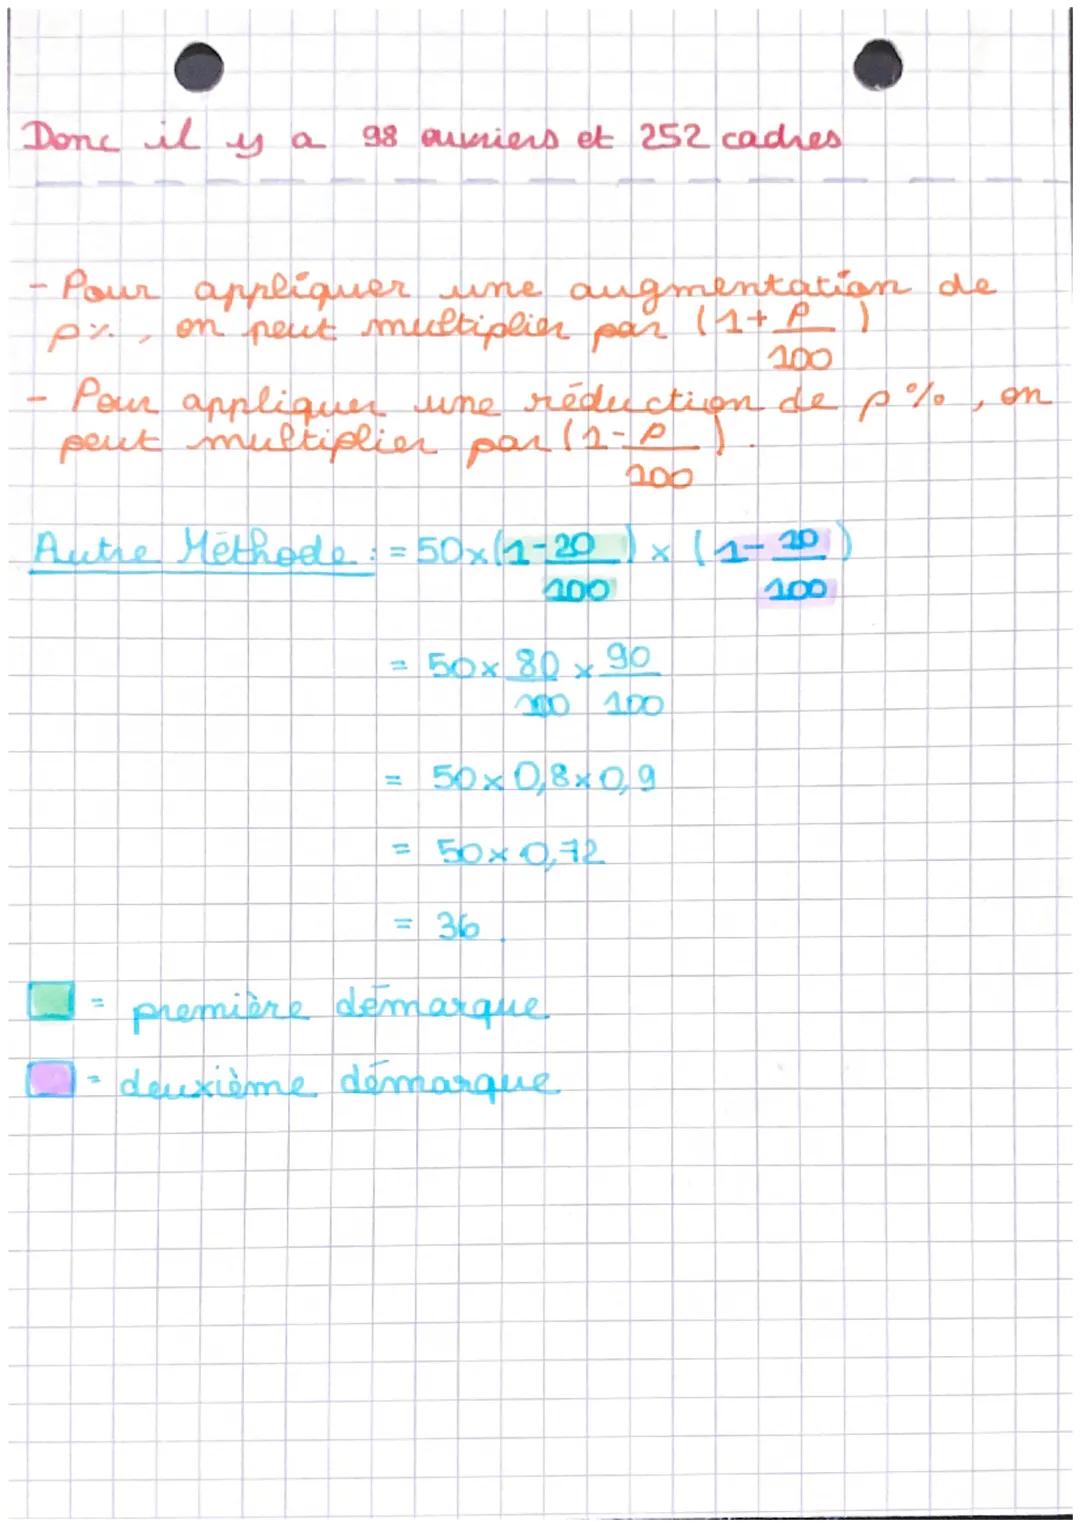 Donc il y a 98 ouvriers et 252 cadres
- Pour appliquer une augmentation de
p%, on peut multiplier par (1+ p/100)
- Pour appliquer une réduction de p%, on
peut multiplier par (1- p/100).
Autre Méthode : = 50x(1-20/100) x (1-10/100)
= 50x 80/100 x 90/100
= 50x0,8x0,9
= 50x0,72
= 36.
= première démarque
= deuxième démarque